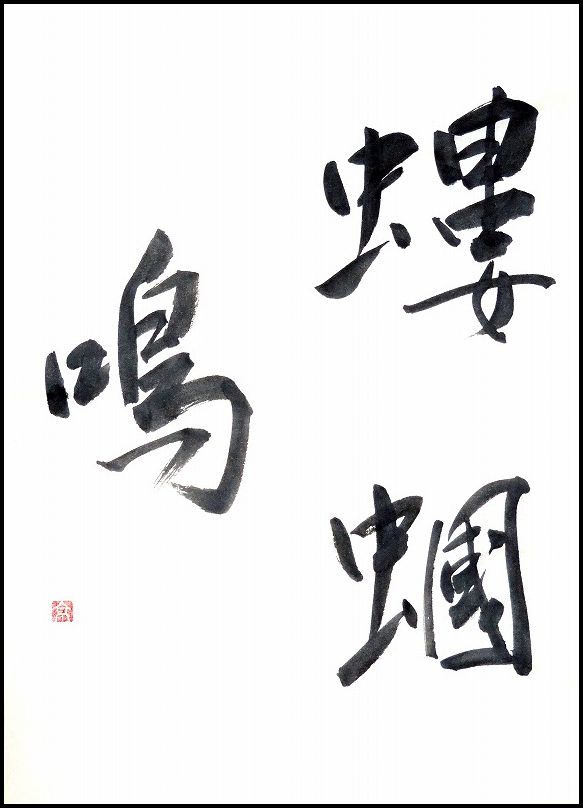 螻蟈
鳴